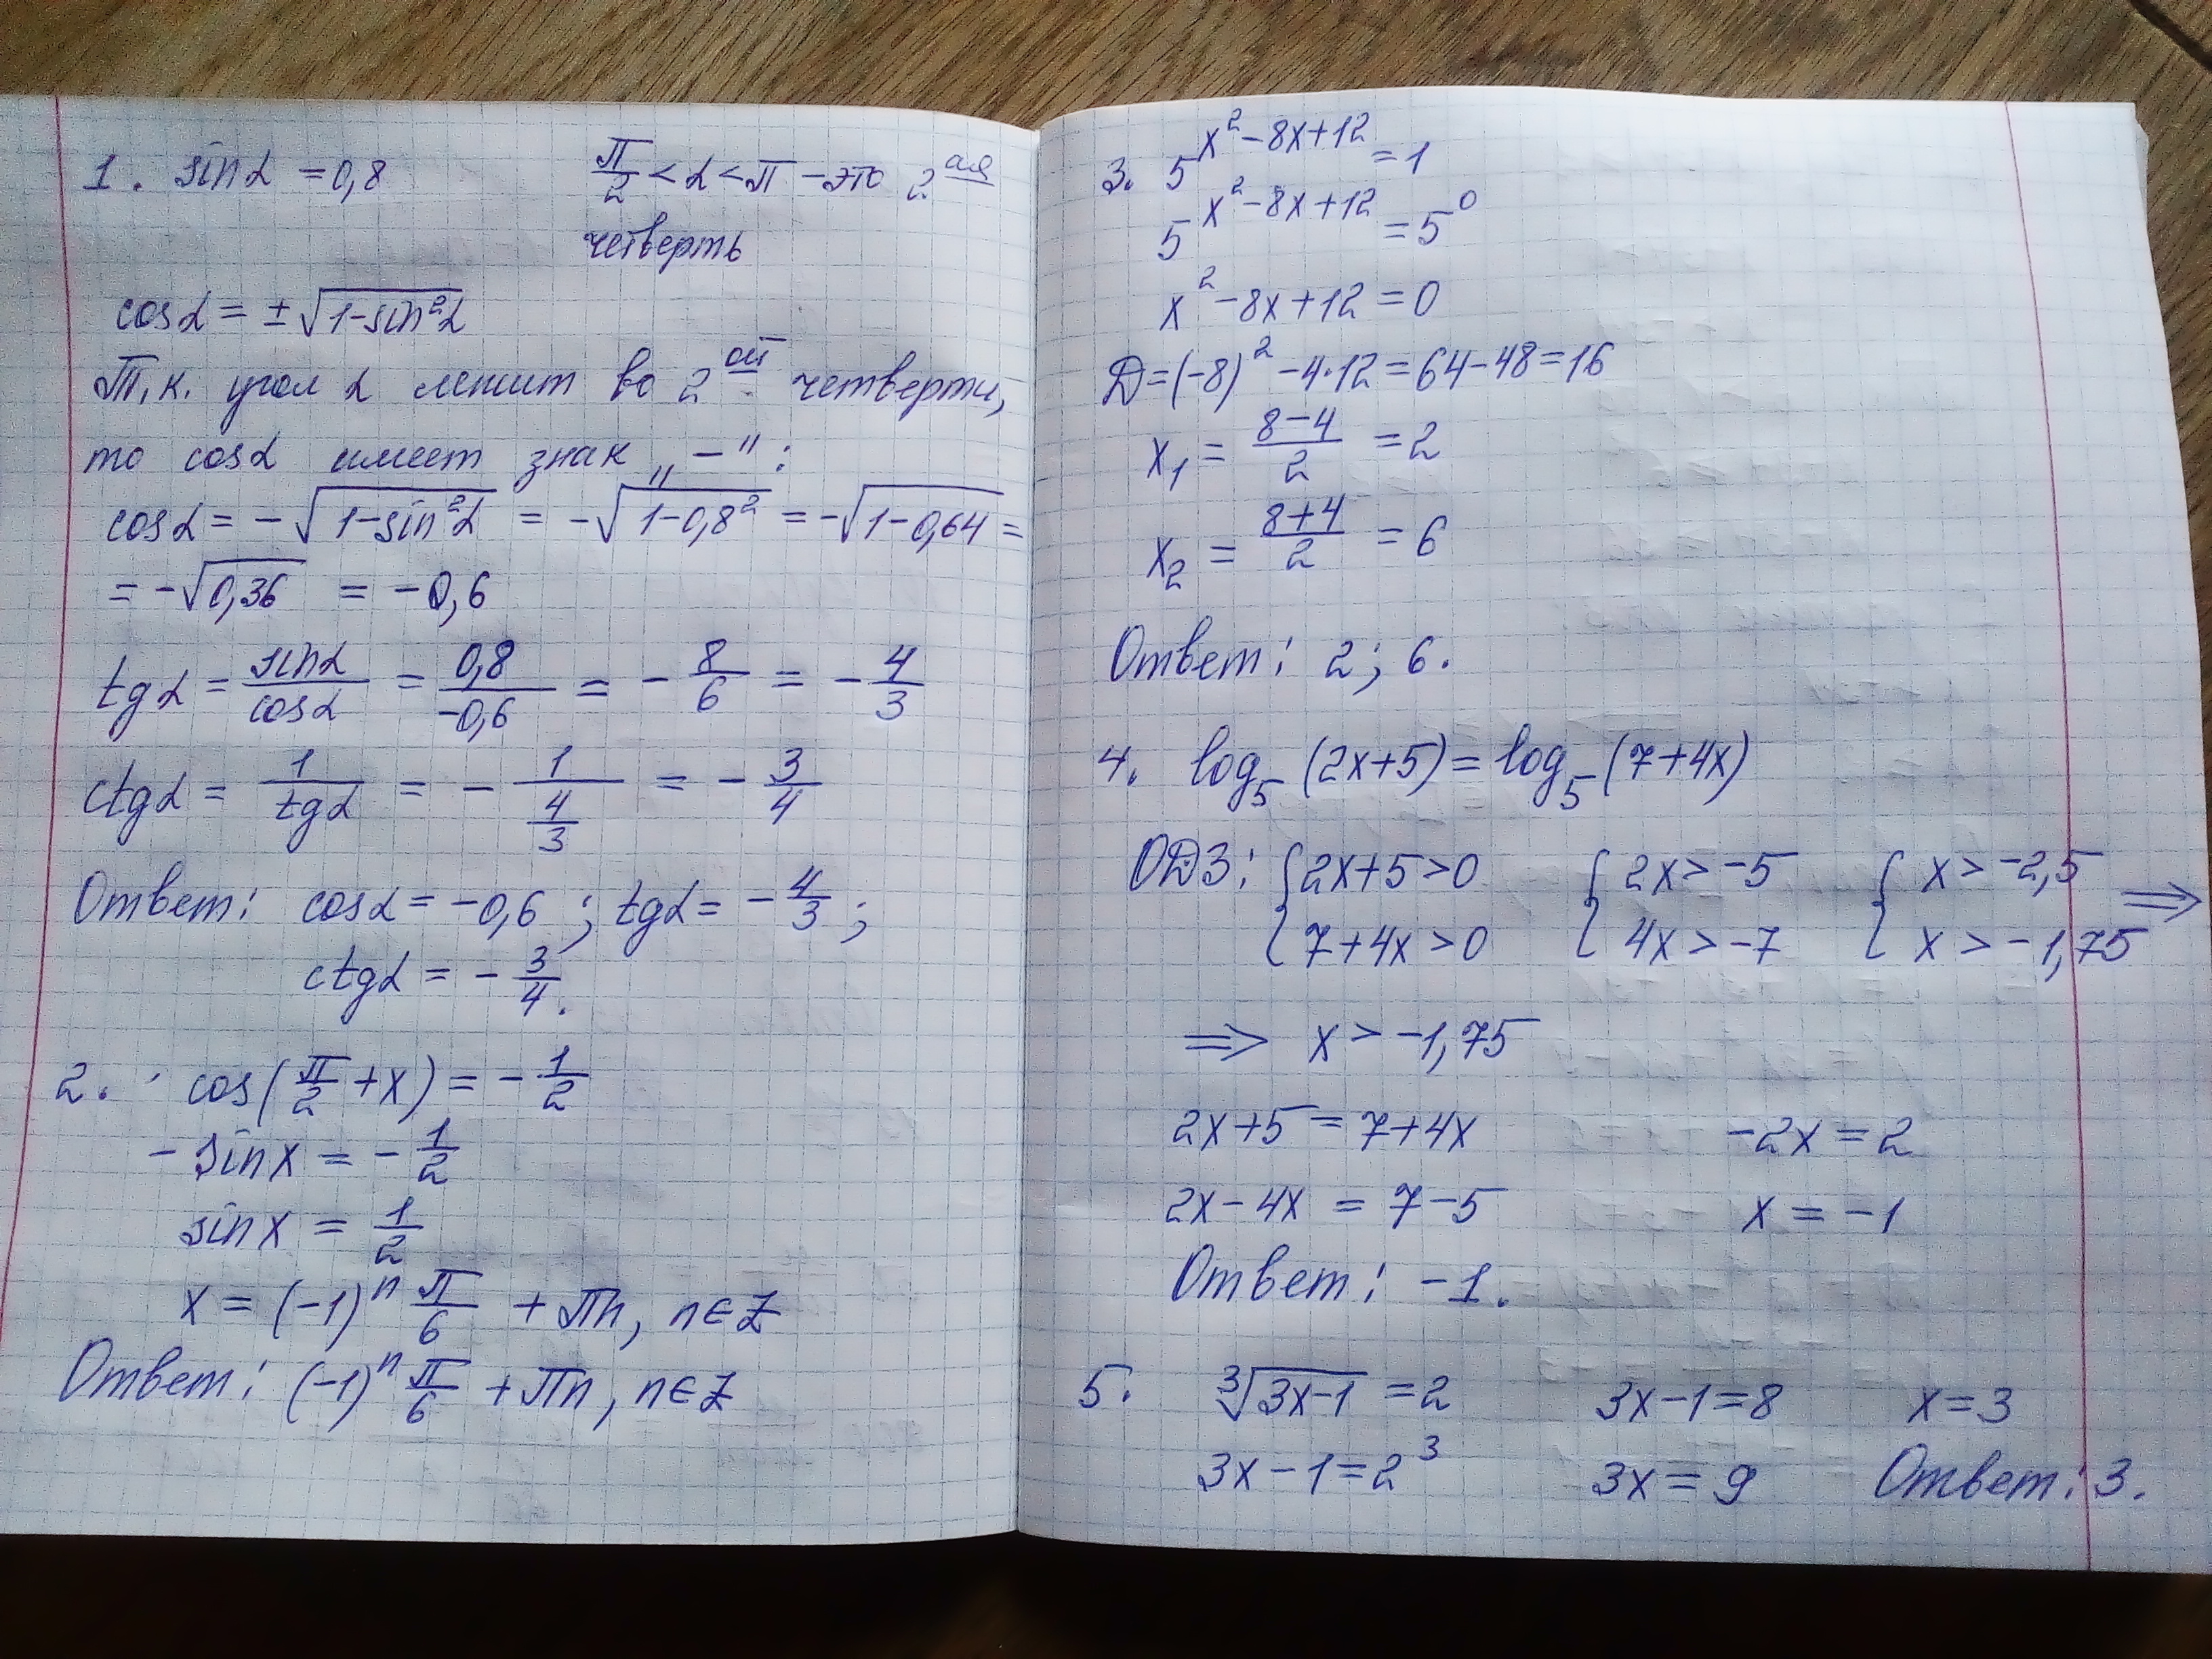 1. sinα = 0,8 π/2 < α < π – это 2ая
четверть
cosα = ±√(1-sin²α)
Т.к. угол α лежит во 2ой четверти,
то cosα имеет знак „–":
cosα = -√(1-sin²α) = -√(1-0,8²) = -√(1-0,64) =
= -√(0,36) = -0,6
tgα = sinα/cosα = 0,8/-0,6 = -8/6 = -4/3
ctgα = 1/tgα = - 1/(4/3) = -3/4
Ответ: cosα = -0,6; tgα = -4/3;
ctgα = -3/4.
2. cos(π/2 + x) = -1/2
-sinx = -1/2
sinx = 1/2
x = (-1)ⁿ π/6 + πn, n∈Z
Ответ: (-1)ⁿ π/6 + πn, n∈Z
3. 5^(x²-8x+12) = 1
5^(x²-8x+12) = 5⁰
x² - 8x + 12 = 0
D = (-8)² - 4·12 = 64 - 48 = 16
x₁ = (8-4)/2 = 2
x₂ = (8+4)/2 = 6
Ответ: 2; 6.
4. log₅(2x+5) = log₅(7+4x)
ОДЗ: { 2x+5>0 { 2x>-5 { x>-2,5 ⇒
7+4x>0 4x>-7 x>-1,75
⇒ x > -1,75
2x+5 = 7+4x -2x = 2
2x-4x = 7-5 x = -1
Ответ: -1.
5. ³√(3x-1) = 2 3x-1=8 x=3
3x-1=2³ 3x=9 Ответ: 3.